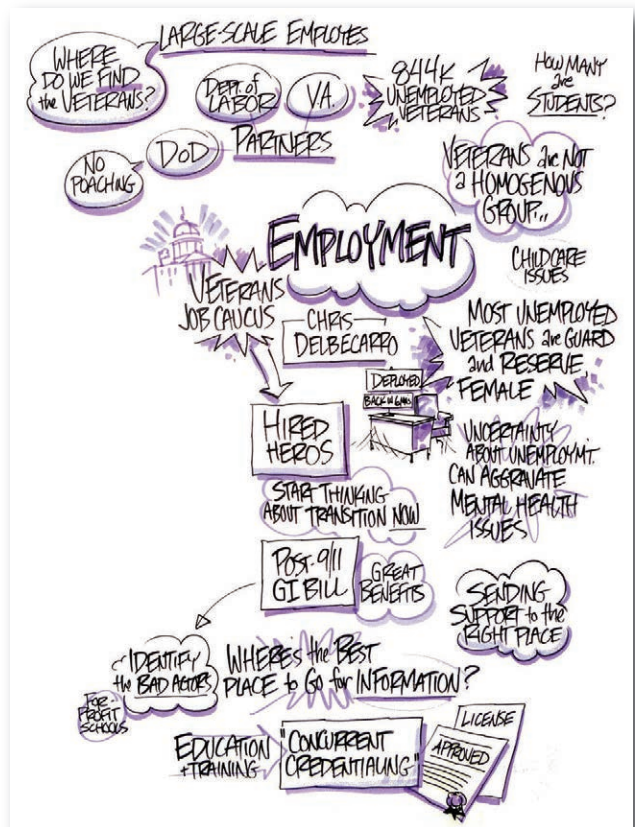 LARGE-SCALE EMPLOYES
WHERE
DO WE FIND
the VETERANS?
DEPT. of
LABOR
V.A.
PARTNERS
DoD
NO
POACHING
844K
UNEMPLOYED
VETERANS
HOW MANY
are
STUDENTS?
VETERANS are NOT
a HOMOGENOUS
GROUP...
EMPLOYMENT
CHILDCARE
ISSUES
VETERANS
JOB CAUCUS
CHRIS
DELBECARRO
MOST UNEMPLOYED
VETERANS are GUARD
and RESERVE,
FEMALE
DEPLOYED
BACK IN 6 MOS
HIRED
HEROS
UNCERTAINTY
ABOUT UNEMPLOYMT.
CAN AGGRAVATE
MENTAL HEALTH
ISSUES
START THINKING
ABOUT TRANSITION NOW
POST-9/11
GI BILL
GREAT
BENEFITS
SENDING
SUPPORT to the
RIGHT PLACE
IDENTIFY
the BAD ACTORS
FOR-
PROFIT
SCHOOLS
WHERE'S the BEST
PLACE to GO for INFORMATION?
EDUCATION
+TRAINING
"CONCURRENT
CREDENTIALING"
LICENSE
APPROVED